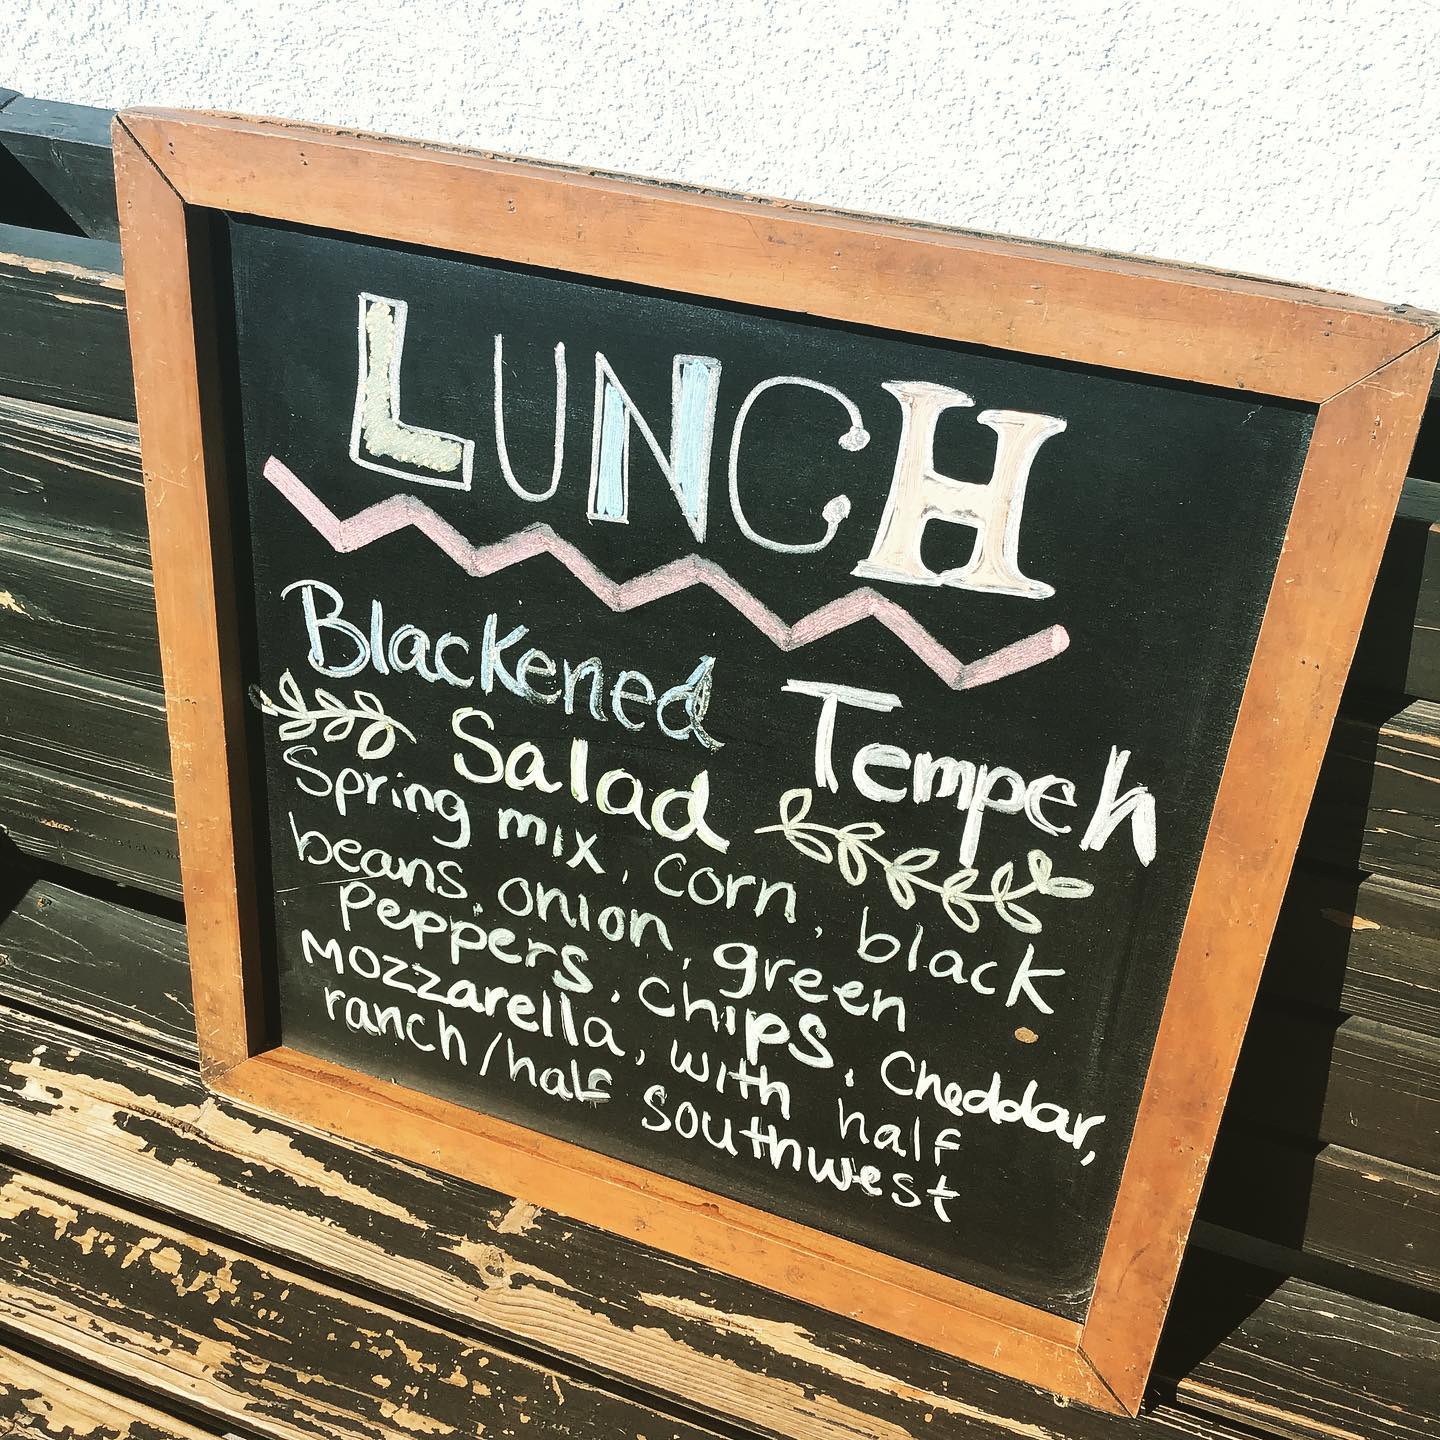 LUNCH
Blackened Tempeh
Salad
Spring mix, corn, black
beans, onion, green
peppers, chips, cheddar,
mozzarella, with half
ranch/half southwest